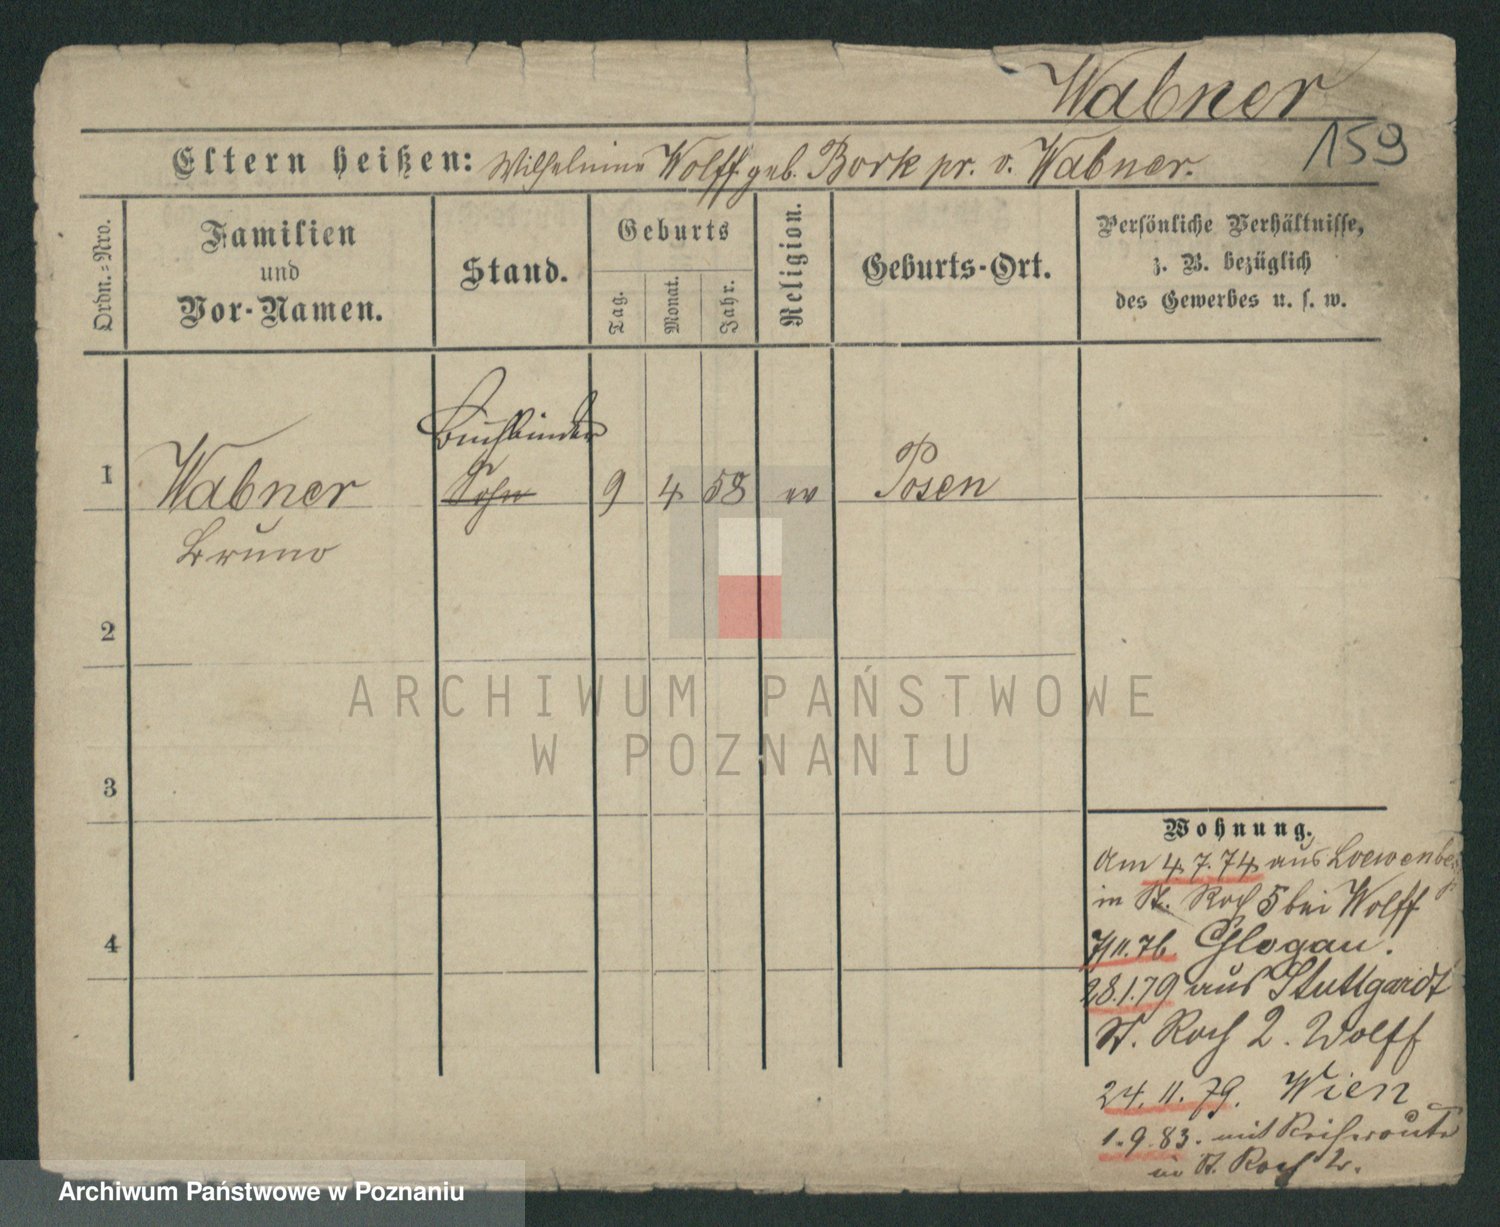 Wabner
159
Eltern heißen: Wilhelmine Wolff geb. Bork pr. v. Wabner.
Ordn.=Nro.
Familien
und
Vor-Namen.
Stand.
Geburts
Tag.
Monat.
Jahr.
Religion.
Geburts-Ort.
Persönliche Verhältnisse,
z. B. bezüglich
des Gewerbes u. s. w.
Buchbinder
1 Wabner Sohn 9 4 58 ev Posen
Bruno
2
3
4
Wohnung.
Am 4.7.74 aus Loewenbe
in St. Roch 5 bei Wolff
7/11.76 Glogau.
28.1.79 aus Stuttgardt
St. Roch 2. Wolff
24.11.79. Wien
1.9.83. mit Reiseroute
in St. Roch 2.
ARCHIWUM PAŃSTWOWE
W POZNANIU
Archiwum Państwowe w Poznaniu